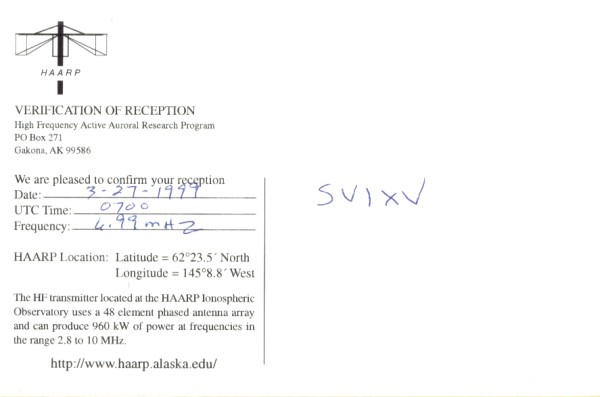 HAARP
VERIFICATION OF RECEPTION
High Frequency Active Auroral Research Program
PO Box 271
Gakona, AK 99586
We are pleased to confirm your reception
Date: 3-27-1999
UTC Time: 0700
Frequency: 6.99 mHZ
SV1XV
HAARP Location: Latitude = 62°23.5´ North
Longitude = 145°8.8´ West
The HF transmitter located at the HAARP Ionospheric
Observatory uses a 48 element phased antenna array
and can produce 960 kW of power at frequencies in
the range 2.8 to 10 MHz.
http://www.haarp.alaska.edu/